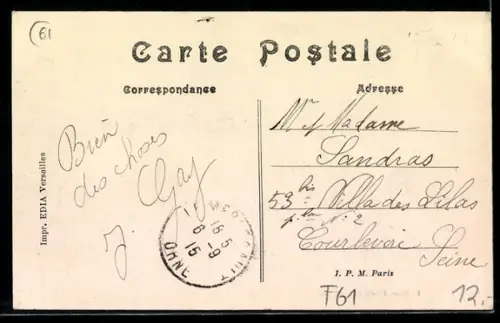 61
Carte Postale
Correspondance
Adresse
Bien
des choses
J. Gay
Mr et Madame
Sandras
53 bis Villa des Lilas
pavillon N: 2
Courbevoie
Seine
16-5
6-9
15
ORNE
Impr. EDIA Versailles
I. P. M. Paris
F61
12.-